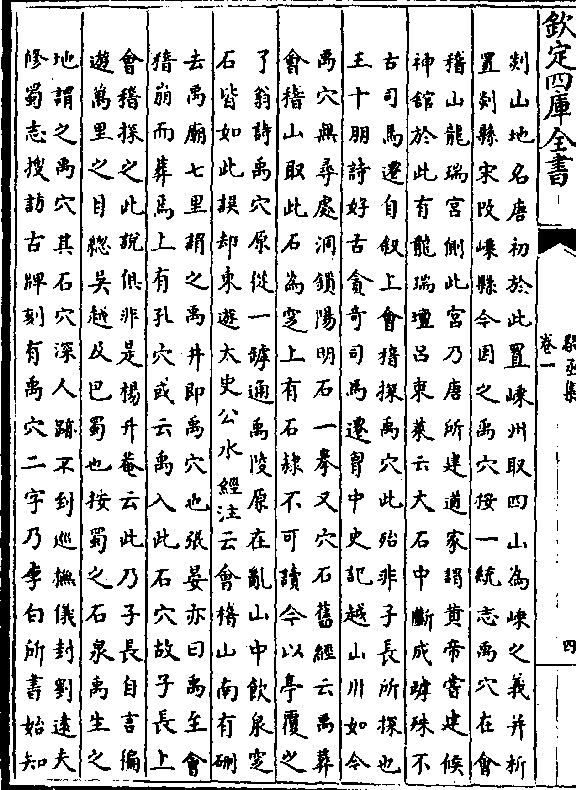 欽定四庫全書
卷一
四
剡山地名唐初於此置嵊州取四山為嵊之義并析
置剡縣宋改嵊縣今因之禹穴按一統志禹穴在會
稽山龍瑞宮側此宮乃唐所建道家謂黄帝嘗建候
神館於此有龍瑞壇呂東萊云大石中斷成罅殊不
古司馬遷自叙上會稽探禹穴此殆非子長所探也
王十朋詩好古貪奇司馬遷胷中史記越山川如今
禹穴無尋處洞鎖陽明石一拳又穴石舊經云禹葬
會稽山取此石為窆上有石隸不可讀今以亭覆之
了翁詩禹穴原從一罅通禹陵原在亂山中飲泉窆
石皆如此誤却東遊太史公水經注云會稽山南有硎
去禹廟七里謂之禹井即禹穴也張晏亦曰禹至會
稽崩而葬焉上有孔穴或云禹入此石穴故子長上
會稽探之此說俱非是楊升菴云此乃子長自言徧
遊萬里之目緫吳越及巴蜀也按蜀之石泉禹生之
地謂之禹穴其石穴深人跡不到巡撫儀封劉遠夫
修蜀志搜訪古碑刻有禹穴二字乃李白所書始知